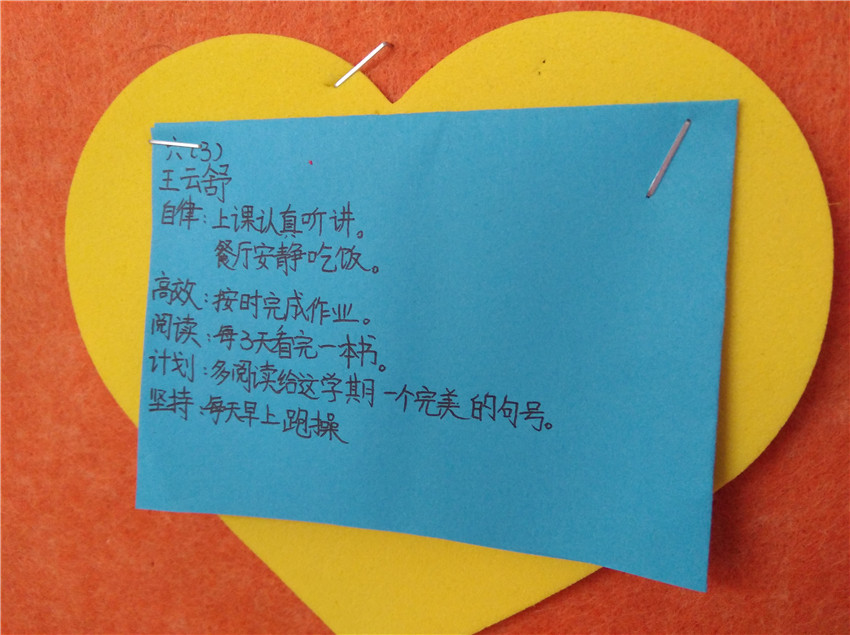 六(3)
王云舒
自律:上课认真听讲。
餐厅安静吃饭。
高效:按时完成作业。
阅读:每3天看完一本书。
计划:多阅读给这学期一个完美的句号。
坚持:每天早上跑操